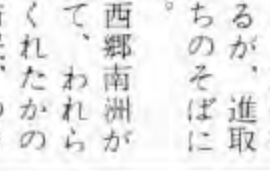 るが、進取
ちのそばに
。
西郷南洲が
て、われら
くれたかの